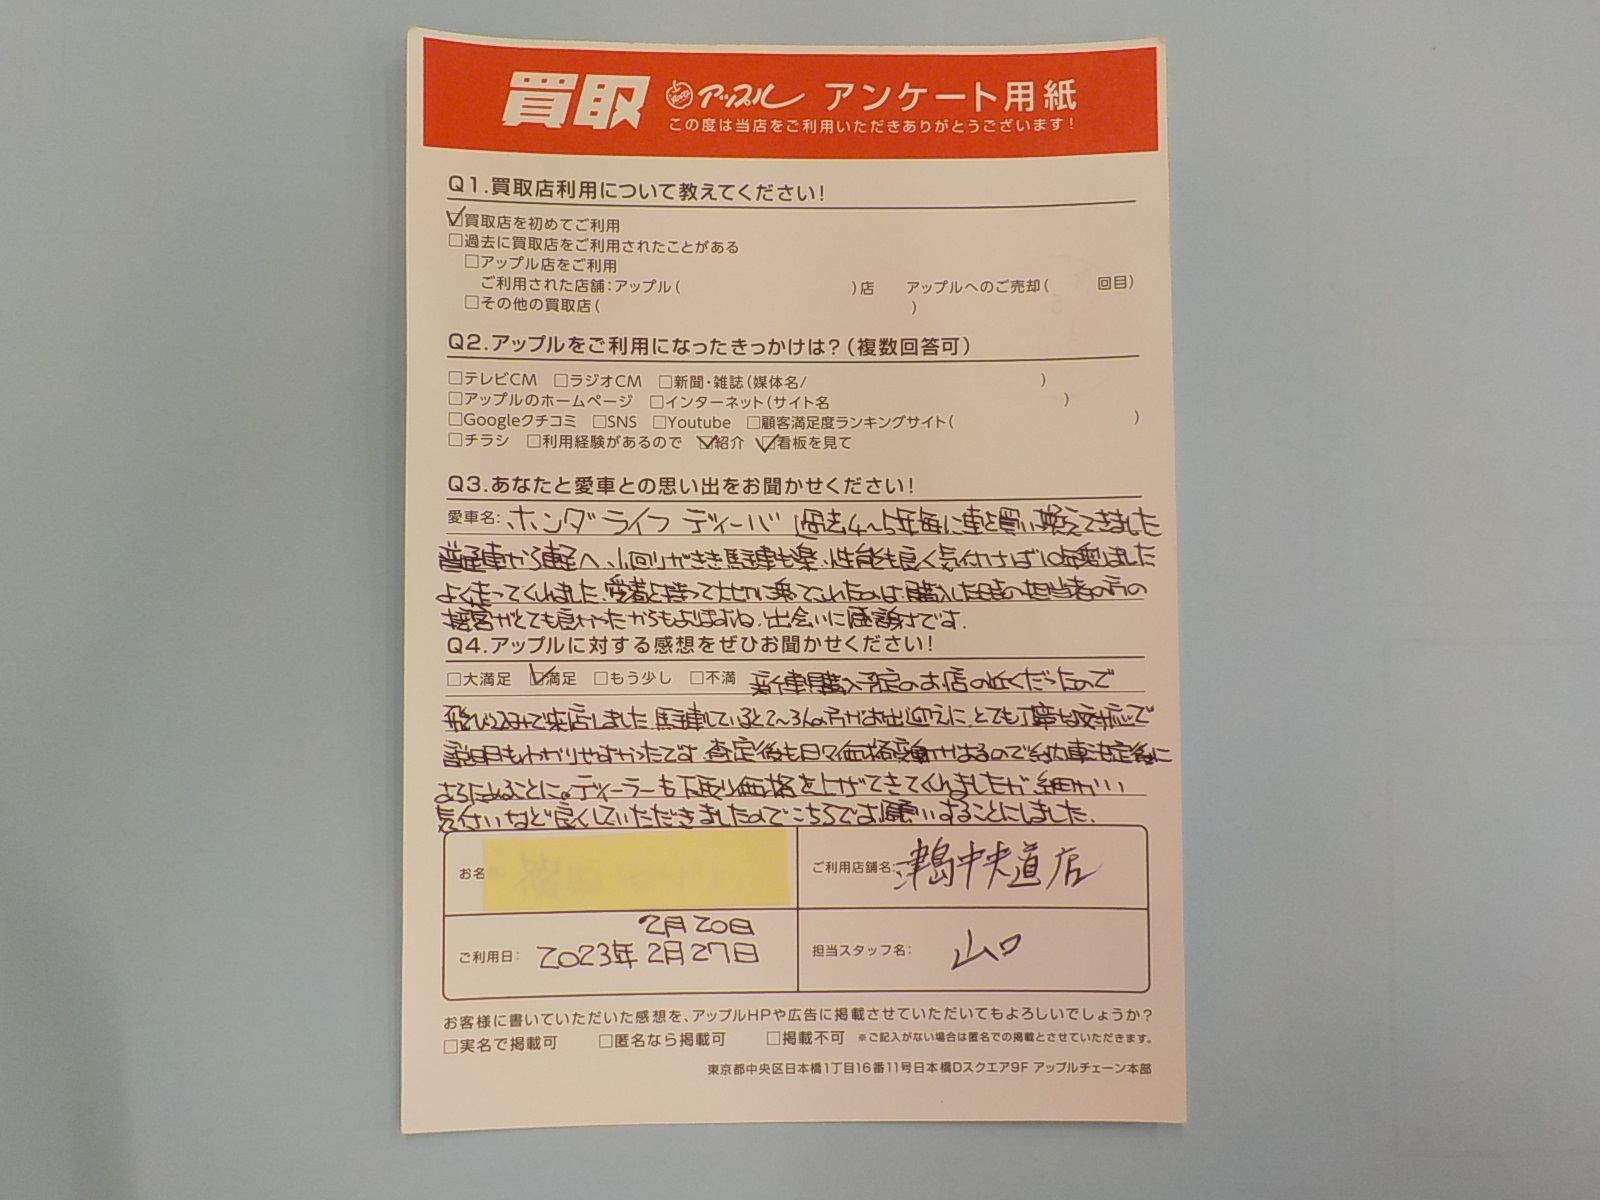 買取 アップル アンケート用紙
この度は当店をご利用いただきありがとうございます!
Q1.買取店利用について教えてください!
☑買取店を初めてご利用
□過去に買取店をご利用されたことがある
□アップル店をご利用
ご利用された店舗:アップル( )店 アップルへのご売却( 回目)
□その他の買取店( )
Q2.アップルをご利用になったきっかけは?(複数回答可)
□テレビCM □ラジオCM □新聞・雑誌(媒体名/ )
□アップルのホームページ □インターネット(サイト名 )
□Googleクチコミ □SNS □Youtube □顧客満足度ランキングサイト( )
□チラシ □利用経験があるので ☑紹介 ☑看板を見て
Q3.あなたと愛車との思い出をお聞かせください!
愛車名: ホンダ ライフ ディーバ 過去4〜5年毎に車を買い換えてきました
普通車から軽へ、小回りがきき駐車も楽、性能も良く気付けば10年乗りました
よく走ってくれました、愛着を持って大切に乗ってこれたのは、購入した時の担当者の方の
接客がとても良かったからもありますね、出会いに感謝です.
Q4.アップルに対する感想をぜひお聞かせください!
□大満足 ☑満足 □もう少し □不満 新車購入予定のお店の近くだったので
飛び込みで来店しました 駐車していると2〜3人の方がお出迎えに、とても丁寧な対応で
説明もわかりやすかったです.査定後も日々価格変動があるので納車決定後に
ことに。ディーラーも下取り価格を上げてきてくれましたが 細かい
気付いなど良くしていただきましたのでこちらでお願いすることにしました.
お名
ご利用店舗名: 津島中央道店
2月20日
ご利用日: 2023年 2月27日
担当スタッフ名: 山口
お客様に書いていただいた感想を、アップルHPや広告に掲載させていただいてもよろしいでしょうか?
□実名で掲載可 □匿名なら掲載可 □掲載不可 ※ご記入がない場合は匿名での掲載とさせていただきます。
東京都中央区日本橋1丁目16番11号日本橋Dスクエア9F アップルチェーン本部